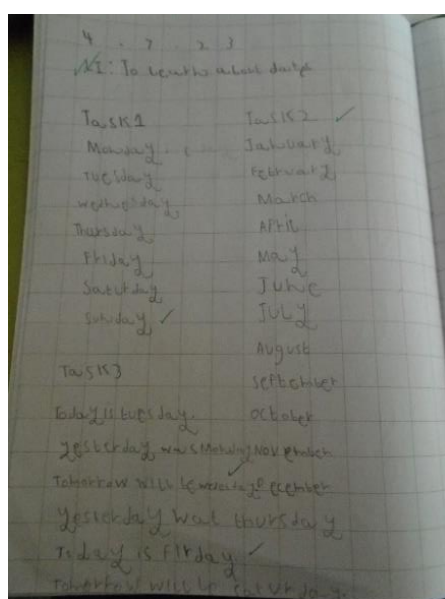 4 . 7 . 2 3
LI: To learn about days
Task1
Monday
Tuesday
Wednesday
Thursday
Friday
Saturday
Sunday
Task2
January
February
March
April
May
June
July
August
September
October
November
December
Task3
Today is tuesday.
yesterday was Monday
Tomorrow will be
yesterday wat thursday
Today is Firday
Tomorrow will saturday.